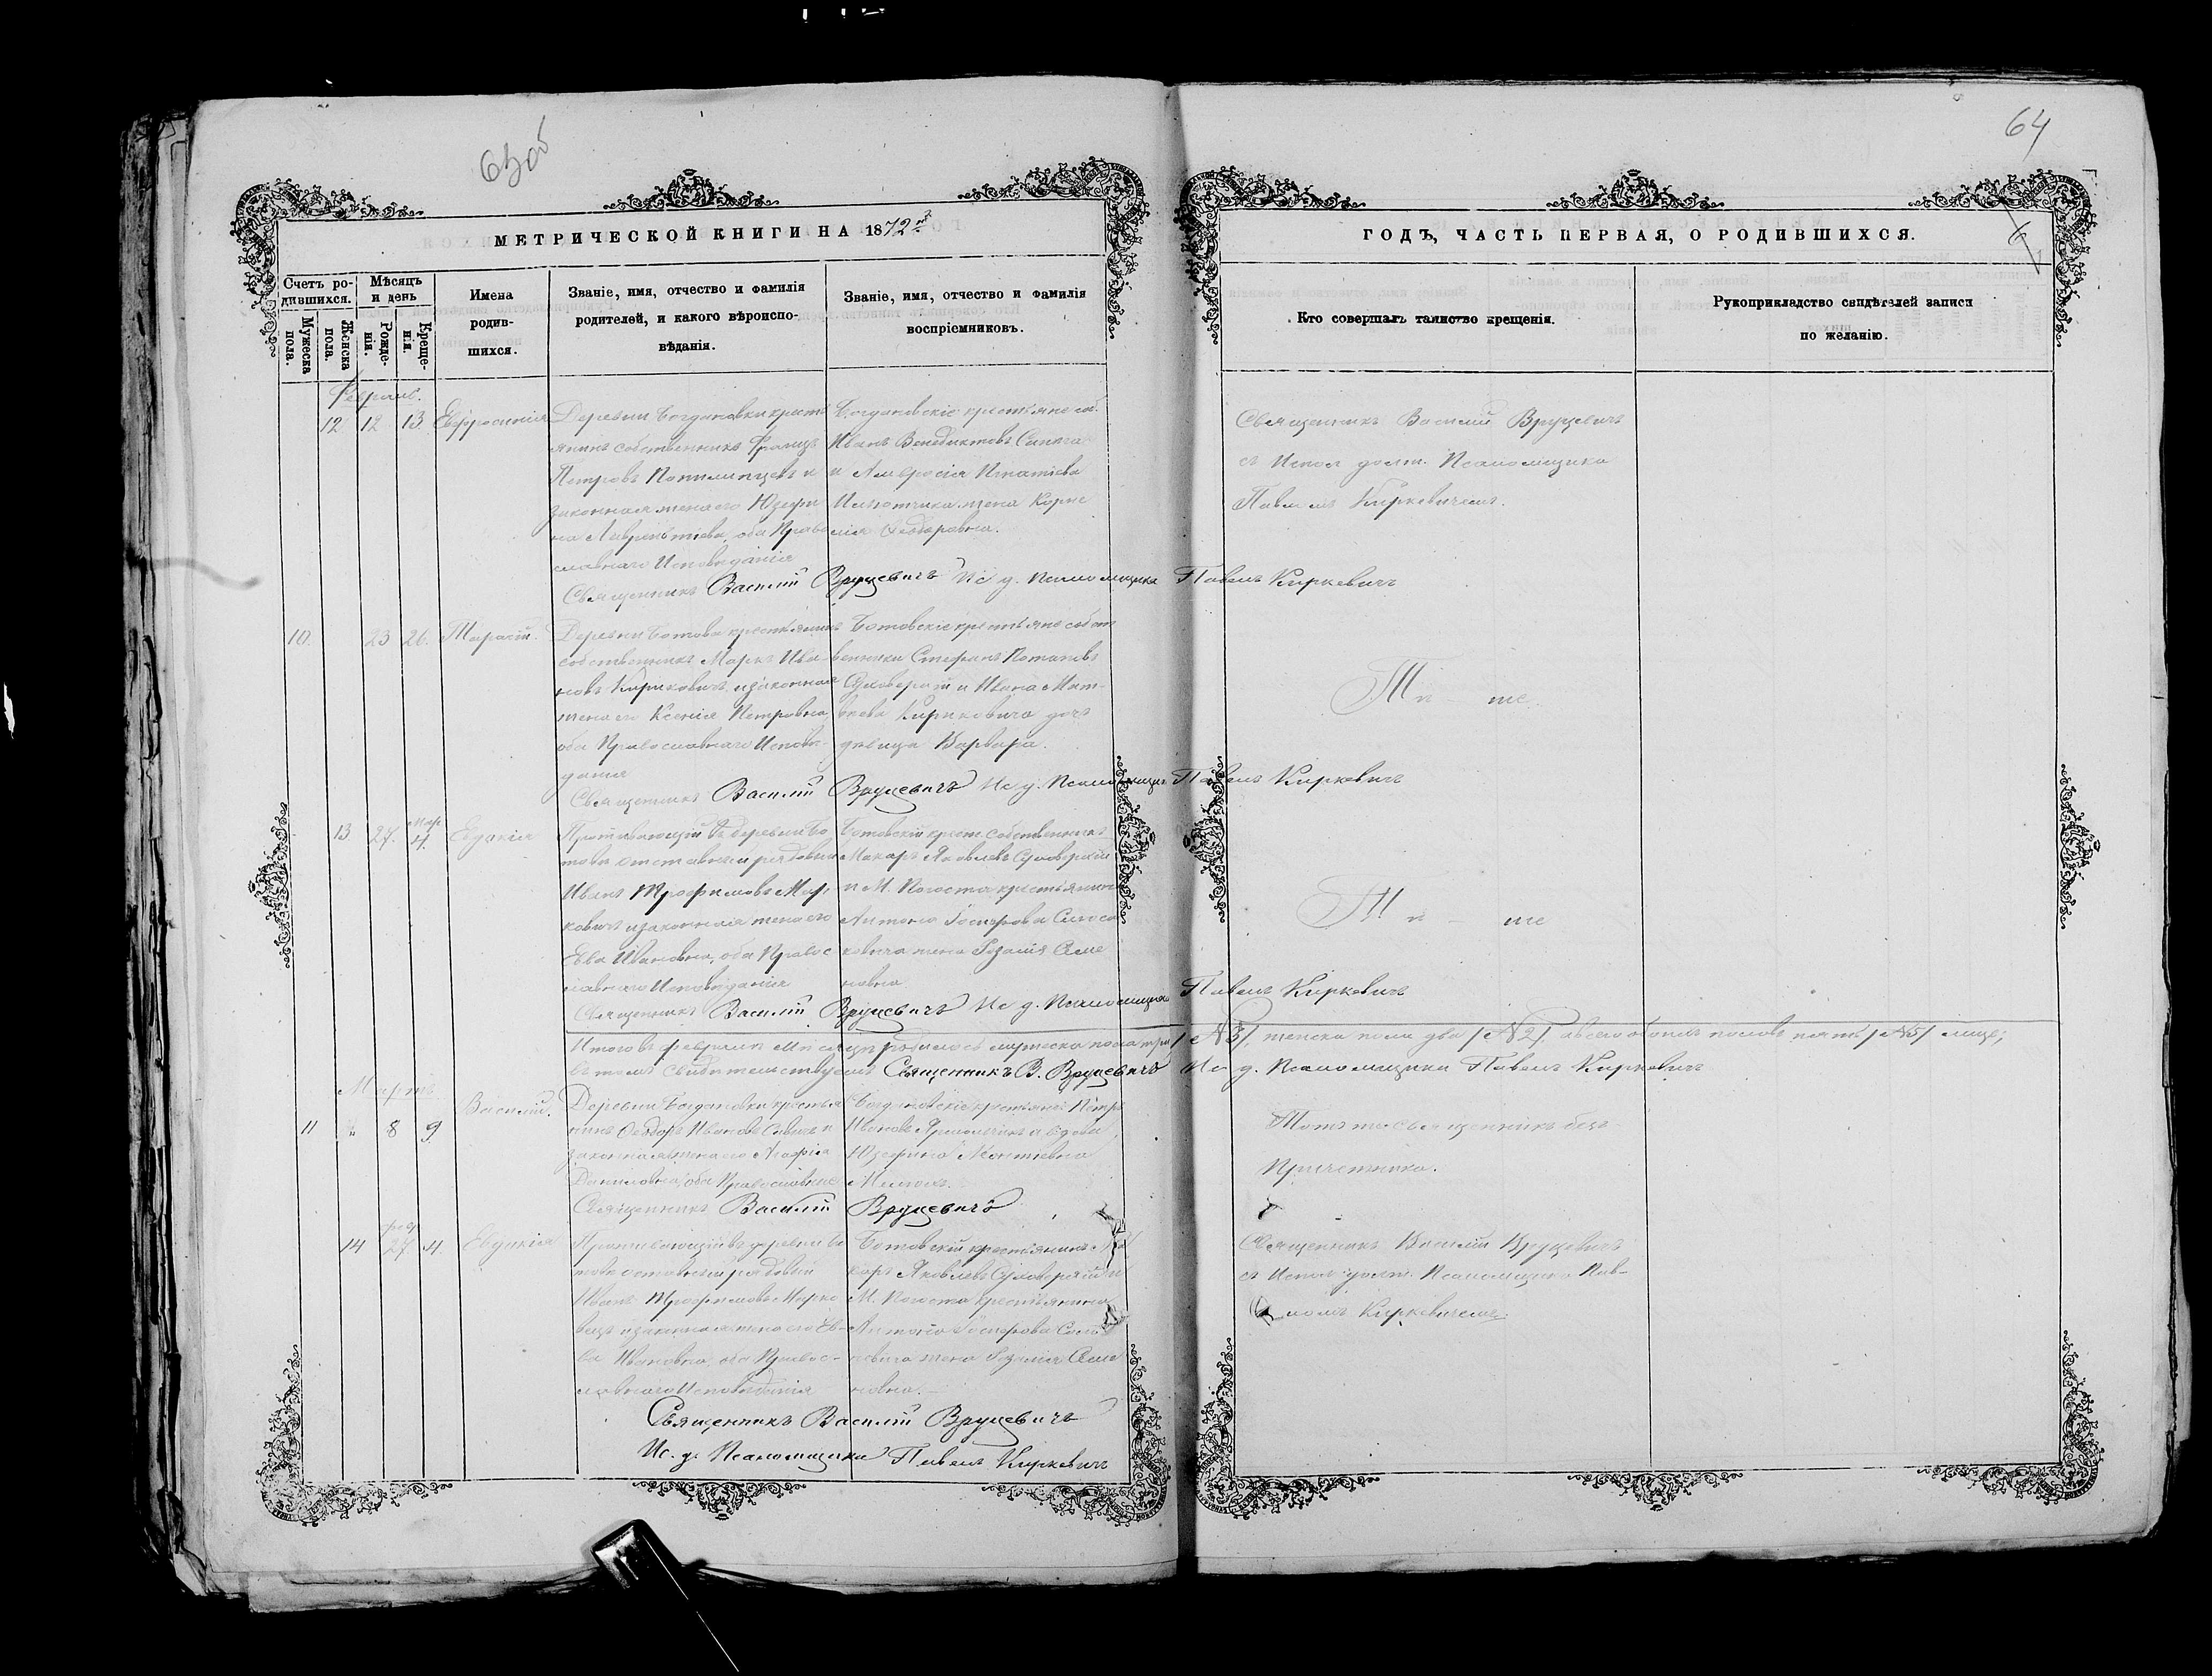 63об
64
6
МЕТРИЧЕСКОЙ КНИГИ НА 1872й
ГОДЪ, ЧАСТЬ ПЕРВАЯ, О РОДИВШИХСЯ.
Счетъ ро-
дившихся.
Мужеска пола.
Женска пола.
Мѣсяцъ
и день
Рожде-
нія.
Креще-
нія.
Имена
родив-
шихся.
Званіе, имя, отчество и фамилія
родителей, и какого вѣроиспо-
вѣданія.
Званіе, имя, отчество и фамилія
воспріемниковъ.
Кто совершалъ таинство крещенія.
Рукоприкладство свидѣтелей записи
по желанію.
Февраль.
12 12 13 Евфросинія
Деревни Богдановки кресть
янинъ собственникъ Францъ
Петровъ и
законная жена его Юзефи
на Лаврентіева, оба Право
славнаго Исповѣданія
Богдановскіе крестьяне соб.
Иванъ Венедиктовъ
и Амвросія Игнатіева
жена Корне
лія Ѳедоровна.
Священникъ Василій Вруцевичъ
съ Испол. долж. Псаломщика
Павломъ Киркевичемъ.
Священникъ Василій Вруцевичъ Ис. д. Псаломщика Павелъ Киркевичъ
10. 23 26. Тарасій.
Деревни Ботова крестьянинъ
собственникъ Маркъ Ива
новъ Кириковичъ и законная
жена его Ксенія Петровна,
оба Православнаго Исповѣ-
данія
Ботовскіе крестьяне собст
венники Стефанъ Потаповъ
Суховерхій и Ивана Мат-
вѣева Кириковича дочь
дѣвица Варвара.
Тѣ же
Священникъ Василій Вруцевичъ Ис. д. Псаломщика Павелъ Киркевичъ
13 27. Мар. 4. Евдокія
Проживающій въ деревни Бо
товѣ отставный рядовый
Иванъ Трофимовъ Мар
ковичъ и законная жена его
Ева Ивановна, оба Правос
лавнаго Исповѣданія
Ботовскій крест. собственникъ
Макаръ Яковлевъ Суховерхій
и М. Погоста крестьянина
Антона
жена Розалія Семе
новна
Тѣ же
Священникъ Василій Вруцевичъ Ис. д. Псаломщика Павелъ Киркевичъ
Итого въ февралѣ мѣсяцѣ родилось мужеска пола три /№3/, женска пола два /№2/, а всего обоихъ половъ пять /№5/ лицъ;
въ томъ свидѣтельствуемъ Священникъ В. Вруцевичъ Ис. д. Псаломщика Павелъ Киркевичъ
Мартъ
11 8 9 Василій.
Деревни Богдановки крестья
нинъ Ѳедоръ Ивановъ и
законная жена его Агафія
Даниловна, оба Православные
Богдановскіе крестьяне Петръ
Ивановъ и вдова
Юзефина
Тотъ же священникъ безъ
Причетника.
Священникъ Василій Вруцевичъ
14 фев. 27 4. Евдокія
Проживающій въ деревни Бо
товѣ отставный рядовый
Иванъ Трофимовъ Марко
вичъ и законная жена его Ев-
ва Ивановна, оба Правос-
лавнаго Исповѣданія
Ботовскій крестьянинъ Ма
каръ Яковлевъ Суховерхій и
М. Погоста крестьянина
Антона
жена Розалія Семе
новна.
Священникъ Василій Вруцевичъ
съ Испол. долж. Псаломщика Пав-
ломъ Киркевичемъ.
Священникъ Василій Вруцевичъ
Ис. д. Псаломщика Павелъ Киркевичъ